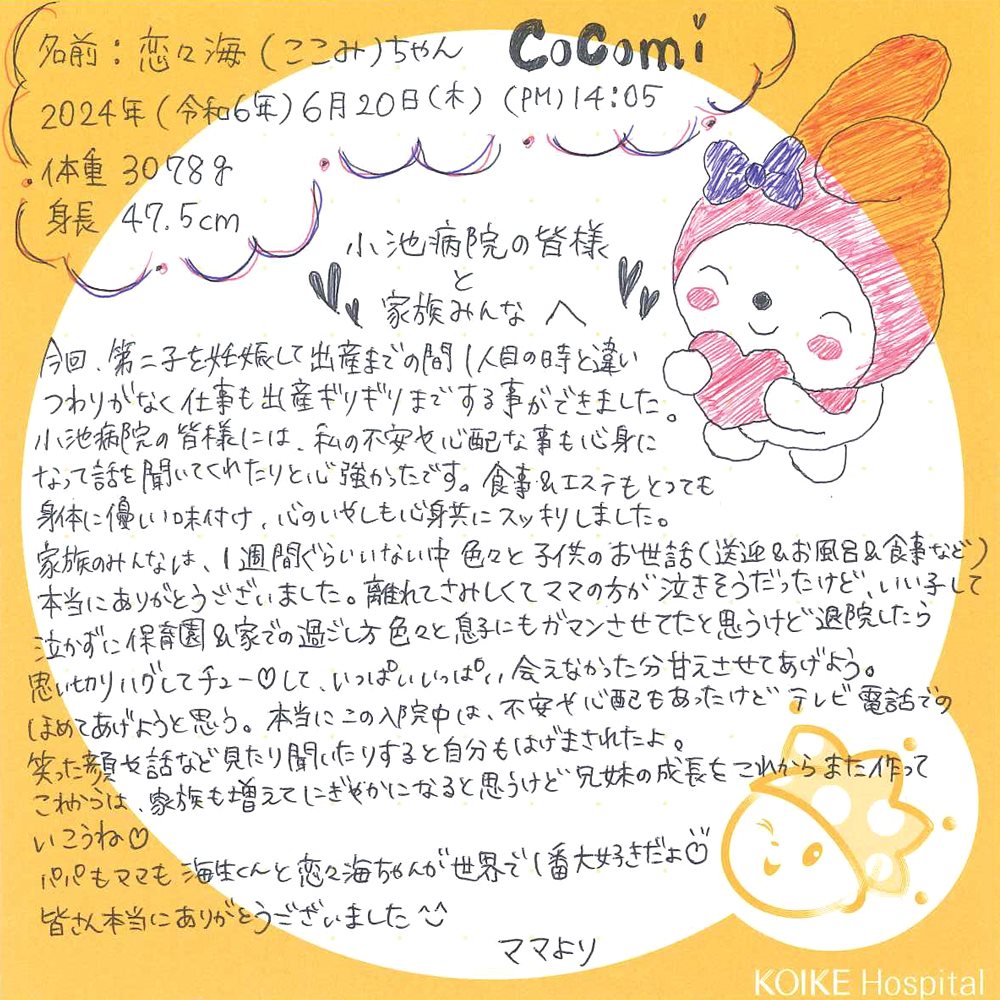 名前：恋々海（ここみ）ちゃん CoComi
2024年（令和6年）6月20日（木）（PM）14:05
体重 3078g
身長 47.5cm
小池病院の皆様
と
家族みんな へ
今回、第二子を妊娠して出産までの間1人目の時と違い
つわりがなく仕事も出産ギリギリまでする事ができました。
小池病院の皆様には、私の不安や心配な事も心身に
なって話を聞いてくれたりと心強かったです。食事&エステもとっても
身体に優しい味付け、心のいやしも心身共にスッキリしました。
家族のみんなは、1週間ぐらいいない中色々と子供のお世話（送迎&お風呂&食事など）
本当にありがとうございました。離れてさみしくてママの方が泣きそうだったけど、いい子して
泣かずに保育園&家での過ごし方色々と息子にもガマンさせてたと思うけど退院したら
思い切りハグしてチュー♡して、いっぱいいっぱい会えなかった分甘えさせてあげよう。
ほめてあげようと思う。本当にこの入院中は、不安や心配もあったけどテレビ電話での
笑った顔や話など見たり聞いたりすると自分もはげまされたよ。
これからは、家族も増えてにぎやかになると思うけど兄妹の成長をこれからまた作って
いこうね♡
パパもママも海生くんと恋々海ちゃんが世界で1番大好きだよ
皆さん本当にありがとうございました^^
ママより
KOIKE Hospital